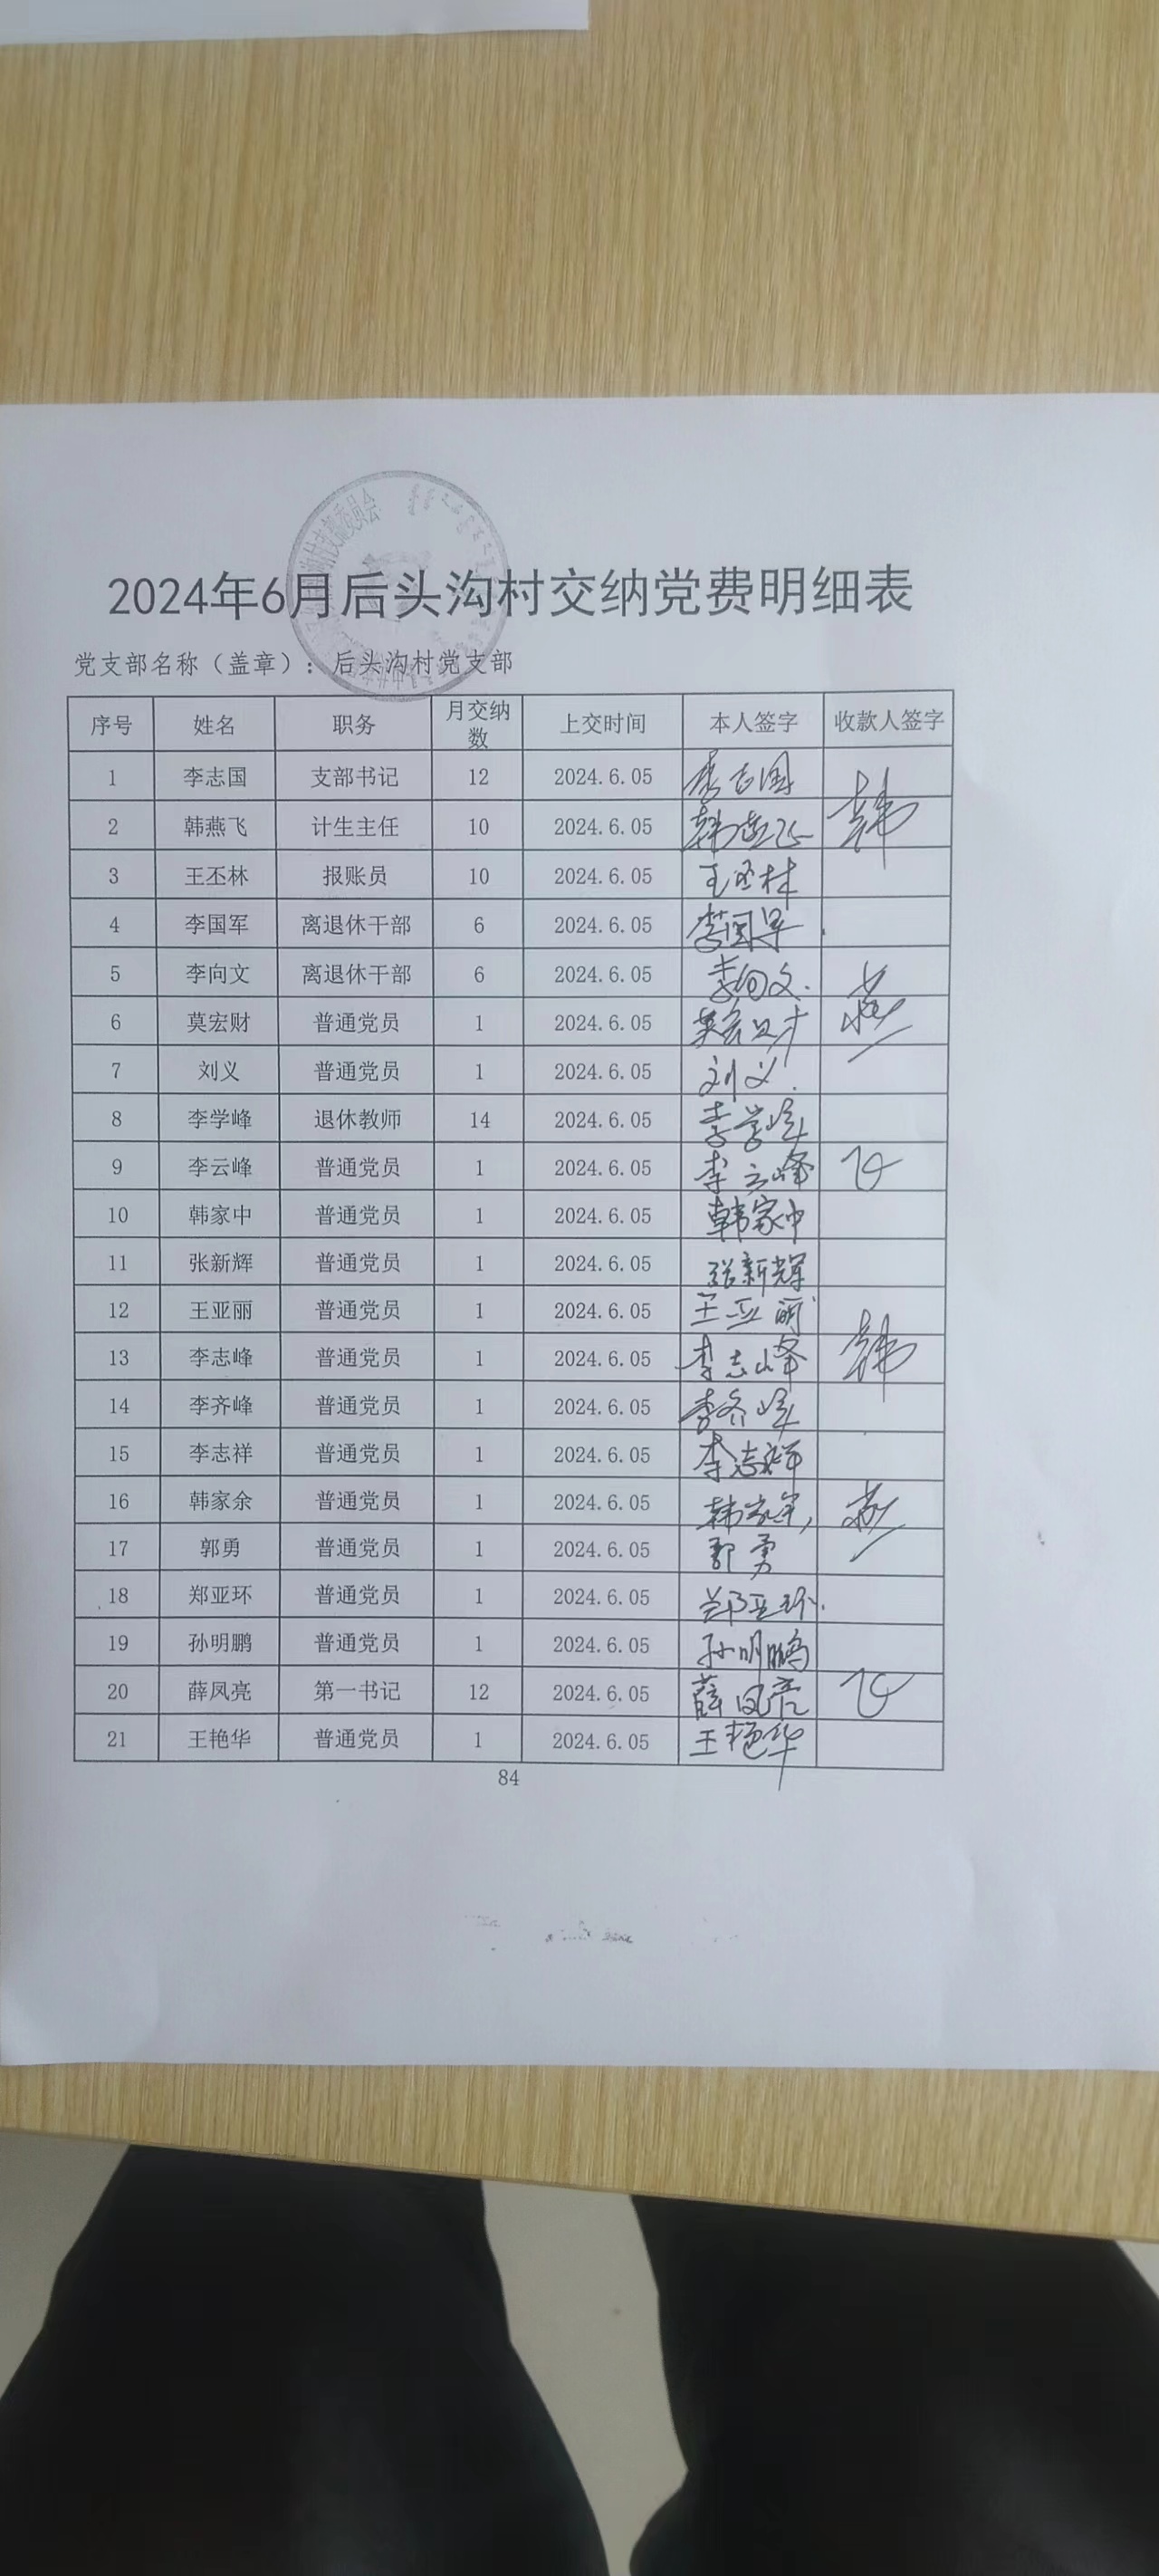 2024年6月后头沟村交纳党费明细表
党支部名称（盖章）：后头沟村党支部
序号 姓名 职务 月交纳数 上交时间 本人签字 收款人签字
1 李志国 支部书记 12 2024.6.05 李志国
2 韩燕飞 计生主任 10 2024.6.05 韩燕飞 韩
3 王丕林 报账员 10 2024.6.05 王丕林
4 李国军 离退休干部 6 2024.6.05 李国军
5 李向文 离退休干部 6 2024.6.05 李向文
6 莫宏财 普通党员 1 2024.6.05 莫宏财 燕
7 刘义 普通党员 1 2024.6.05 刘义
8 李学峰 退休教师 14 2024.6.05 李学峰
9 李云峰 普通党员 1 2024.6.05 李云峰 飞
10 韩家中 普通党员 1 2024.6.05 韩家中
11 张新辉 普通党员 1 2024.6.05 张新辉
12 王亚丽 普通党员 1 2024.6.05 王亚丽
13 李志峰 普通党员 1 2024.6.05 李志峰 韩
14 李齐峰 普通党员 1 2024.6.05 李齐峰
15 李志祥 普通党员 1 2024.6.05 李志祥
16 韩家余 普通党员 1 2024.6.05 韩家余 燕
17 郭勇 普通党员 1 2024.6.05 郭勇
18 郑亚环 普通党员 1 2024.6.05 郑亚环
19 孙明鹏 普通党员 1 2024.6.05 孙明鹏
20 薛凤亮 第一书记 12 2024.6.05 薛凤亮 飞
21 王艳华 普通党员 1 2024.6.05 王艳华
84